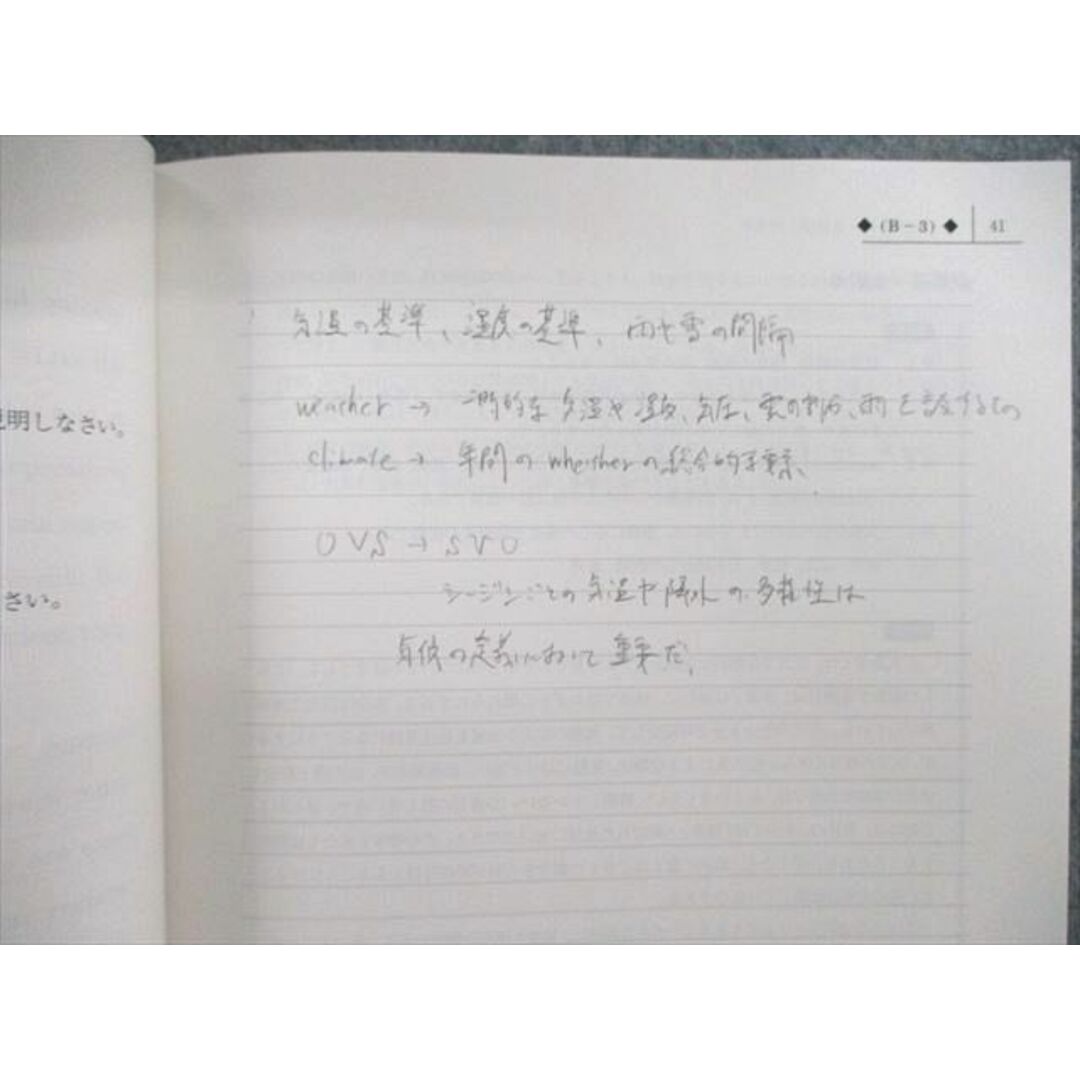 ◆(B-3)◆ 41
気温の基準、湿度の基準、雨や雪の間隔
weather → 一時的な気温や湿度、気圧、雲の
climate → 年間の wheather の総合的な要素、
OVS → SVO
シーズンごとの気温や降水の多様性は
気候の定義において重要だ、
説明しなさい。
さい。